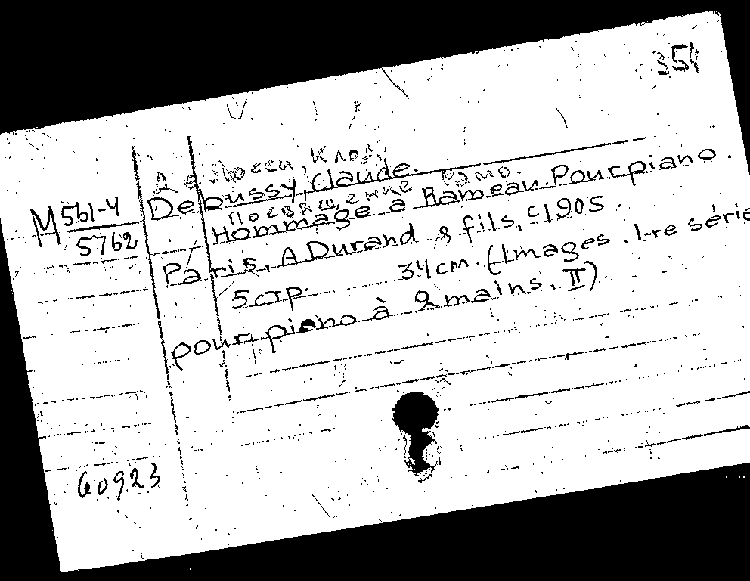 351
Дебюсси, Клод.
Debussy, Claude.
M 561-4
5762
Посвящение Рамо.
Hommage à Rameau Pour piano.
Paris, A Durand & fils, c1905.
5 стр. 34 cm. (Images. 1-re série
pour piano à 2 mains. II)
60923